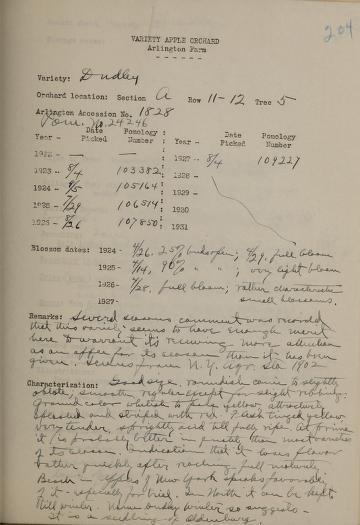 204
VARIETY APPLE ORCHARD
Arlington Farm
Variety: Dudley
Orchard location: Section A Row 11-12 Tree 5
Arlington Accession No. 1828
Pom. No. 24246
Year - Date Picked Pomology Number Year - Date Picked Pomology Number
1922 - — — 1927 - 8/4 109227
1923 - 8/4 103382 1928 -
1924 - 9/5 105164 1929 -
1925 - 7/29 106514 1930
1926 - 8/26 107850 1931
Blossom dates: 1924 - 4/26, 25% buds open; 4/29, full bloom
1925 - 4/14, 90% " " ; very light bloom
1926 - 4/28, full bloom; rather characteristic
small blossoms.
1927-
Remarks: Several seasons comment was recorded
that this variety seems to have enough merit
here to warrant its receiving more attention
as an apple for its season than it has been
given. Scions from N.Y. Agr. Sta 1902
Characterization: Good size, roundish conic to slightly
oblate, smooth, regular except for slight ribbing;
Ground color whitish to pale yellow attractively
splashed and striped with red. Flesh tinged yellow
very tender, sprightly acid till fully ripe. At prime
it is probably better in quality than most varieties
of its season. Indication that it loses flavor
rather quickly after reaching full maturity.
Beach in Apples of New York speaks favorably
of it - especially for trial. In North it can be kept
till winter. Name Dudley Winter so suggests.
It is a seedling of Oldenburg.